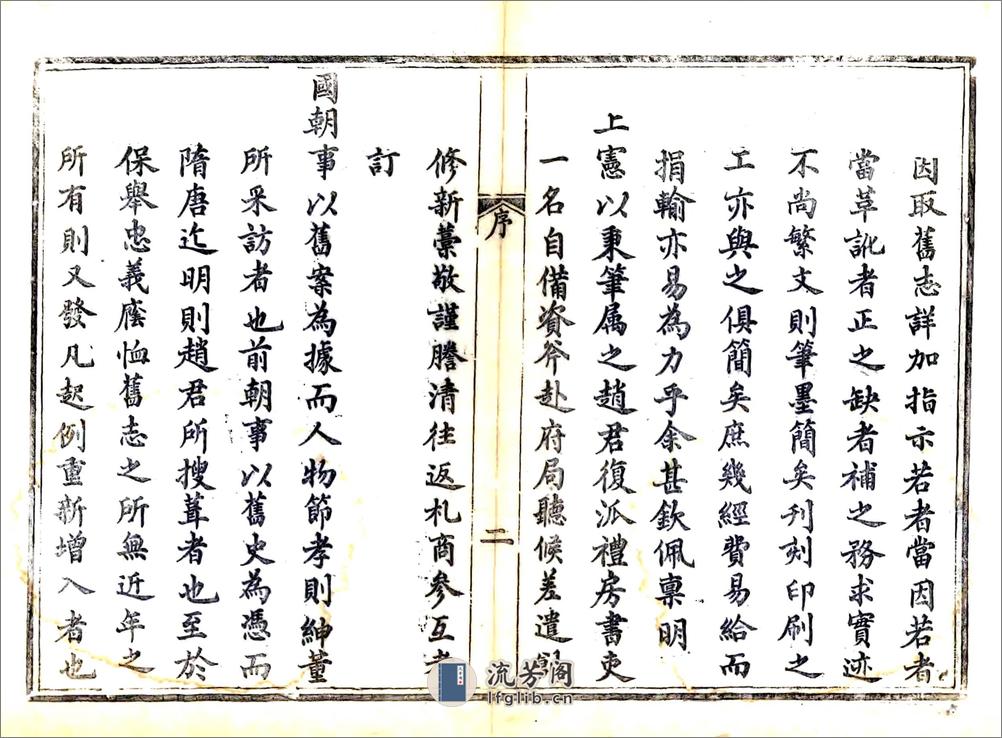 因取舊志詳加指示若者當因若者
當革訛者正之缺者補之務求實迹
不尚繁文則筆墨簡矣刊刻印刷之
工亦與之俱簡矣庶幾經費易給而
捐輸亦易為力乎余甚欽佩稟明
上憲以秉筆属之趙君復派禮房書吏
一名自備資斧赴府局聽候差遣
序
二
修新藁敬謹謄清往返札商參互考
訂
國朝事以舊案為據而人物節孝則紳董
所采訪者也前朝事以舊史為憑而
隋唐迄明則趙君所搜葺者也至於
保舉忠義廕恤舊志之所無近年之
所有則又發凡起例重新增入者也
流芳阁
lfglib.cn